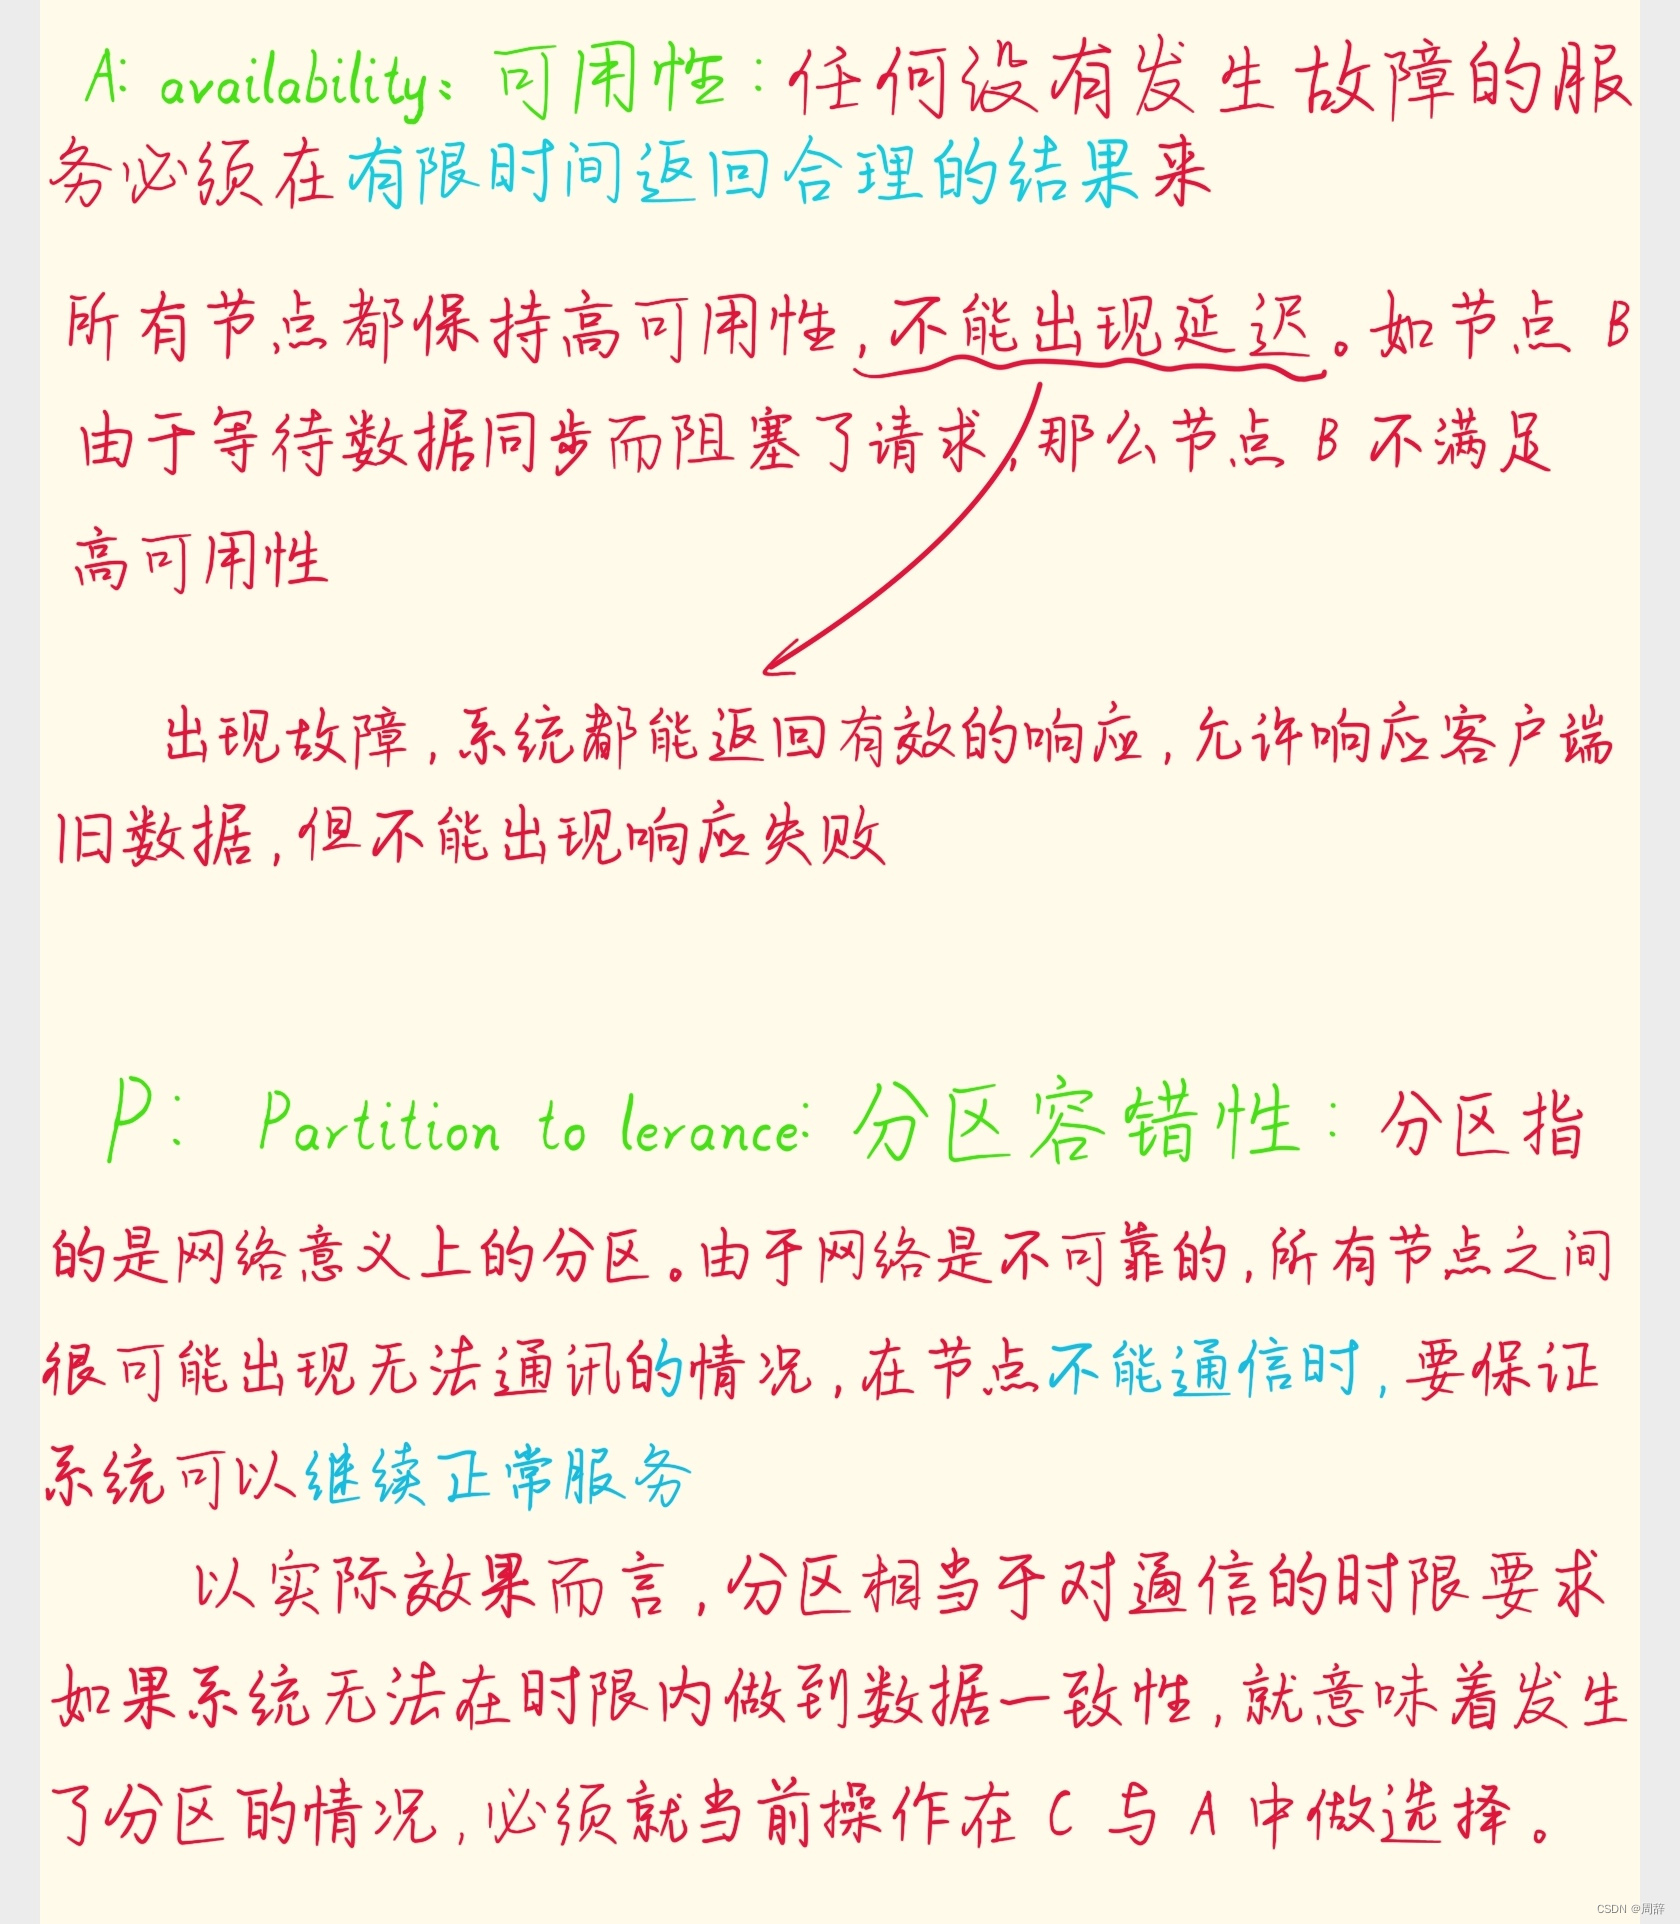 A: availability: 可用性: 任何没有发生故障的服
务必须在有限时间返回合理的结果来
所有节点都保持高可用性, 不能出现延迟。如节点 B
由于等待数据同步而阻塞了请求, 那么节点 B 不满足
高可用性
出现故障, 系统都能返回有效的响应, 允许响应客户端
旧数据, 但不能出现响应失败
P: Partition to lerance: 分区容错性: 分区指
的是网络意义上的分区。由于网络是不可靠的, 所有节点之间
很可能出现无法通讯的情况, 在节点不能通信时, 要保证
系统可以继续正常服务
以实际效果而言, 分区相当于对通信的时限要求
如果系统无法在时限内做到数据一致性, 就意味着发生
了分区的情况, 必须就当前操作在 C 与 A 中做选择。
CSDN @周辞